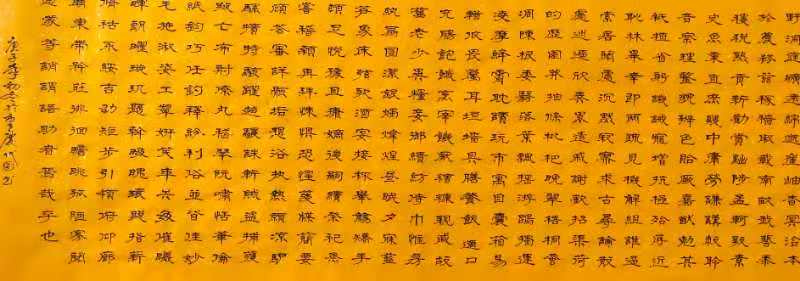 野洞庭曠遠綿邈巖岫杳冥治本
於農務茲稼穡俶載南畝我藝黍
稷稅熟貢新勸賞黜陟孟軻敦素
史魚秉直庶幾中庸勞謙謹敕聆
音察理鑒貌辨色貽厥嘉猷勉其
祗植省躬譏誡寵增抗極殆辱近
恥林皋幸即兩疏見機解組誰逼
索居閒處沉默寂寥求古尋論散
慮逍遙欣奏累遣慼謝歡招渠荷
的歷園莽抽條枇杷晚翠梧桐蚤
凋陳根委翳落葉飄颻遊鵾獨運
凌摩絳霄耽讀玩市寓目囊箱易
輶攸畏屬耳垣牆具膳餐飯適口
充腸飽飫烹宰飢厭糟糠親戚故
舊老少異糧妾御績紡侍巾帷房
紈扇圓潔銀燭煒煌晝眠夕寐藍
筍象床弦歌酒宴接杯舉觴矯手
頓足悅豫且康嫡後嗣續祭祀烝
嘗稽顙再拜悚懼恐惶牋牒簡要
顧答審詳骸垢想浴執熱願涼驢
騾犢特駭躍超驤誅斬賊盜捕獲
叛亡布射僚丸嵇琴阮嘯恬筆倫
紙鈞巧任釣釋紛利俗並皆佳妙
毛施淑姿工顰妍笑年矢每催曦
暉朗曜璇璣懸斡晦魄環照指薪
修祜永綏吉劭矩步引領俯仰廊
廟束帶矜莊徘徊瞻眺孤陋寡聞
愚蒙等誚謂語助者焉哉乎也
庚子年初冬於